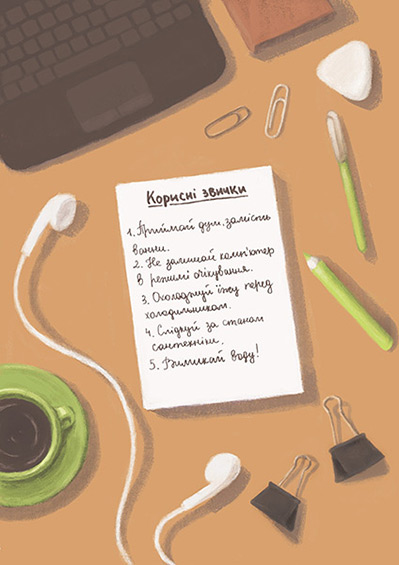 Корисні звички
1. Приймай душ, замість
ванни.
2. Не залишай комп'ютер
в режимі очікування.
3. Охолоджуй їжу перед
холодильником.
4. Слідкуй за станом
сантехніки.
5. Вимикай воду!